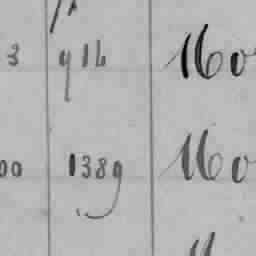 3 916 160
00 1389 160